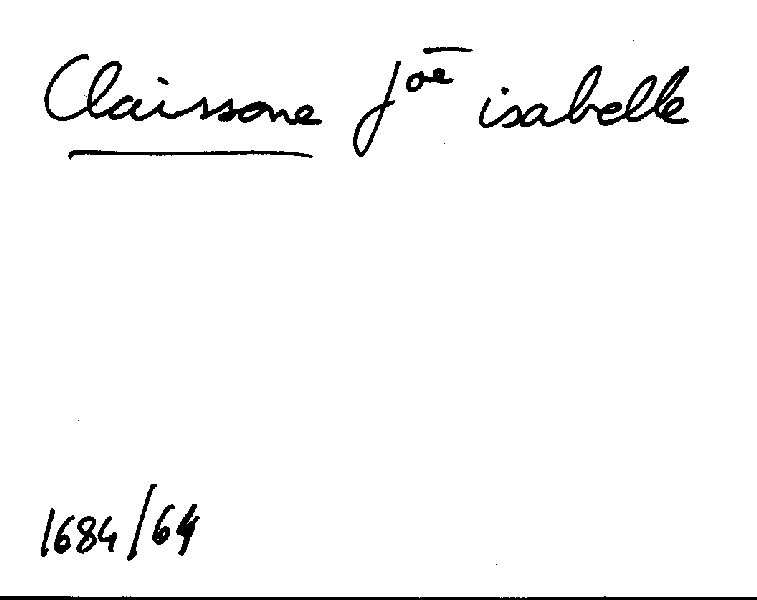 Claissone Joe isabelle
1684/64